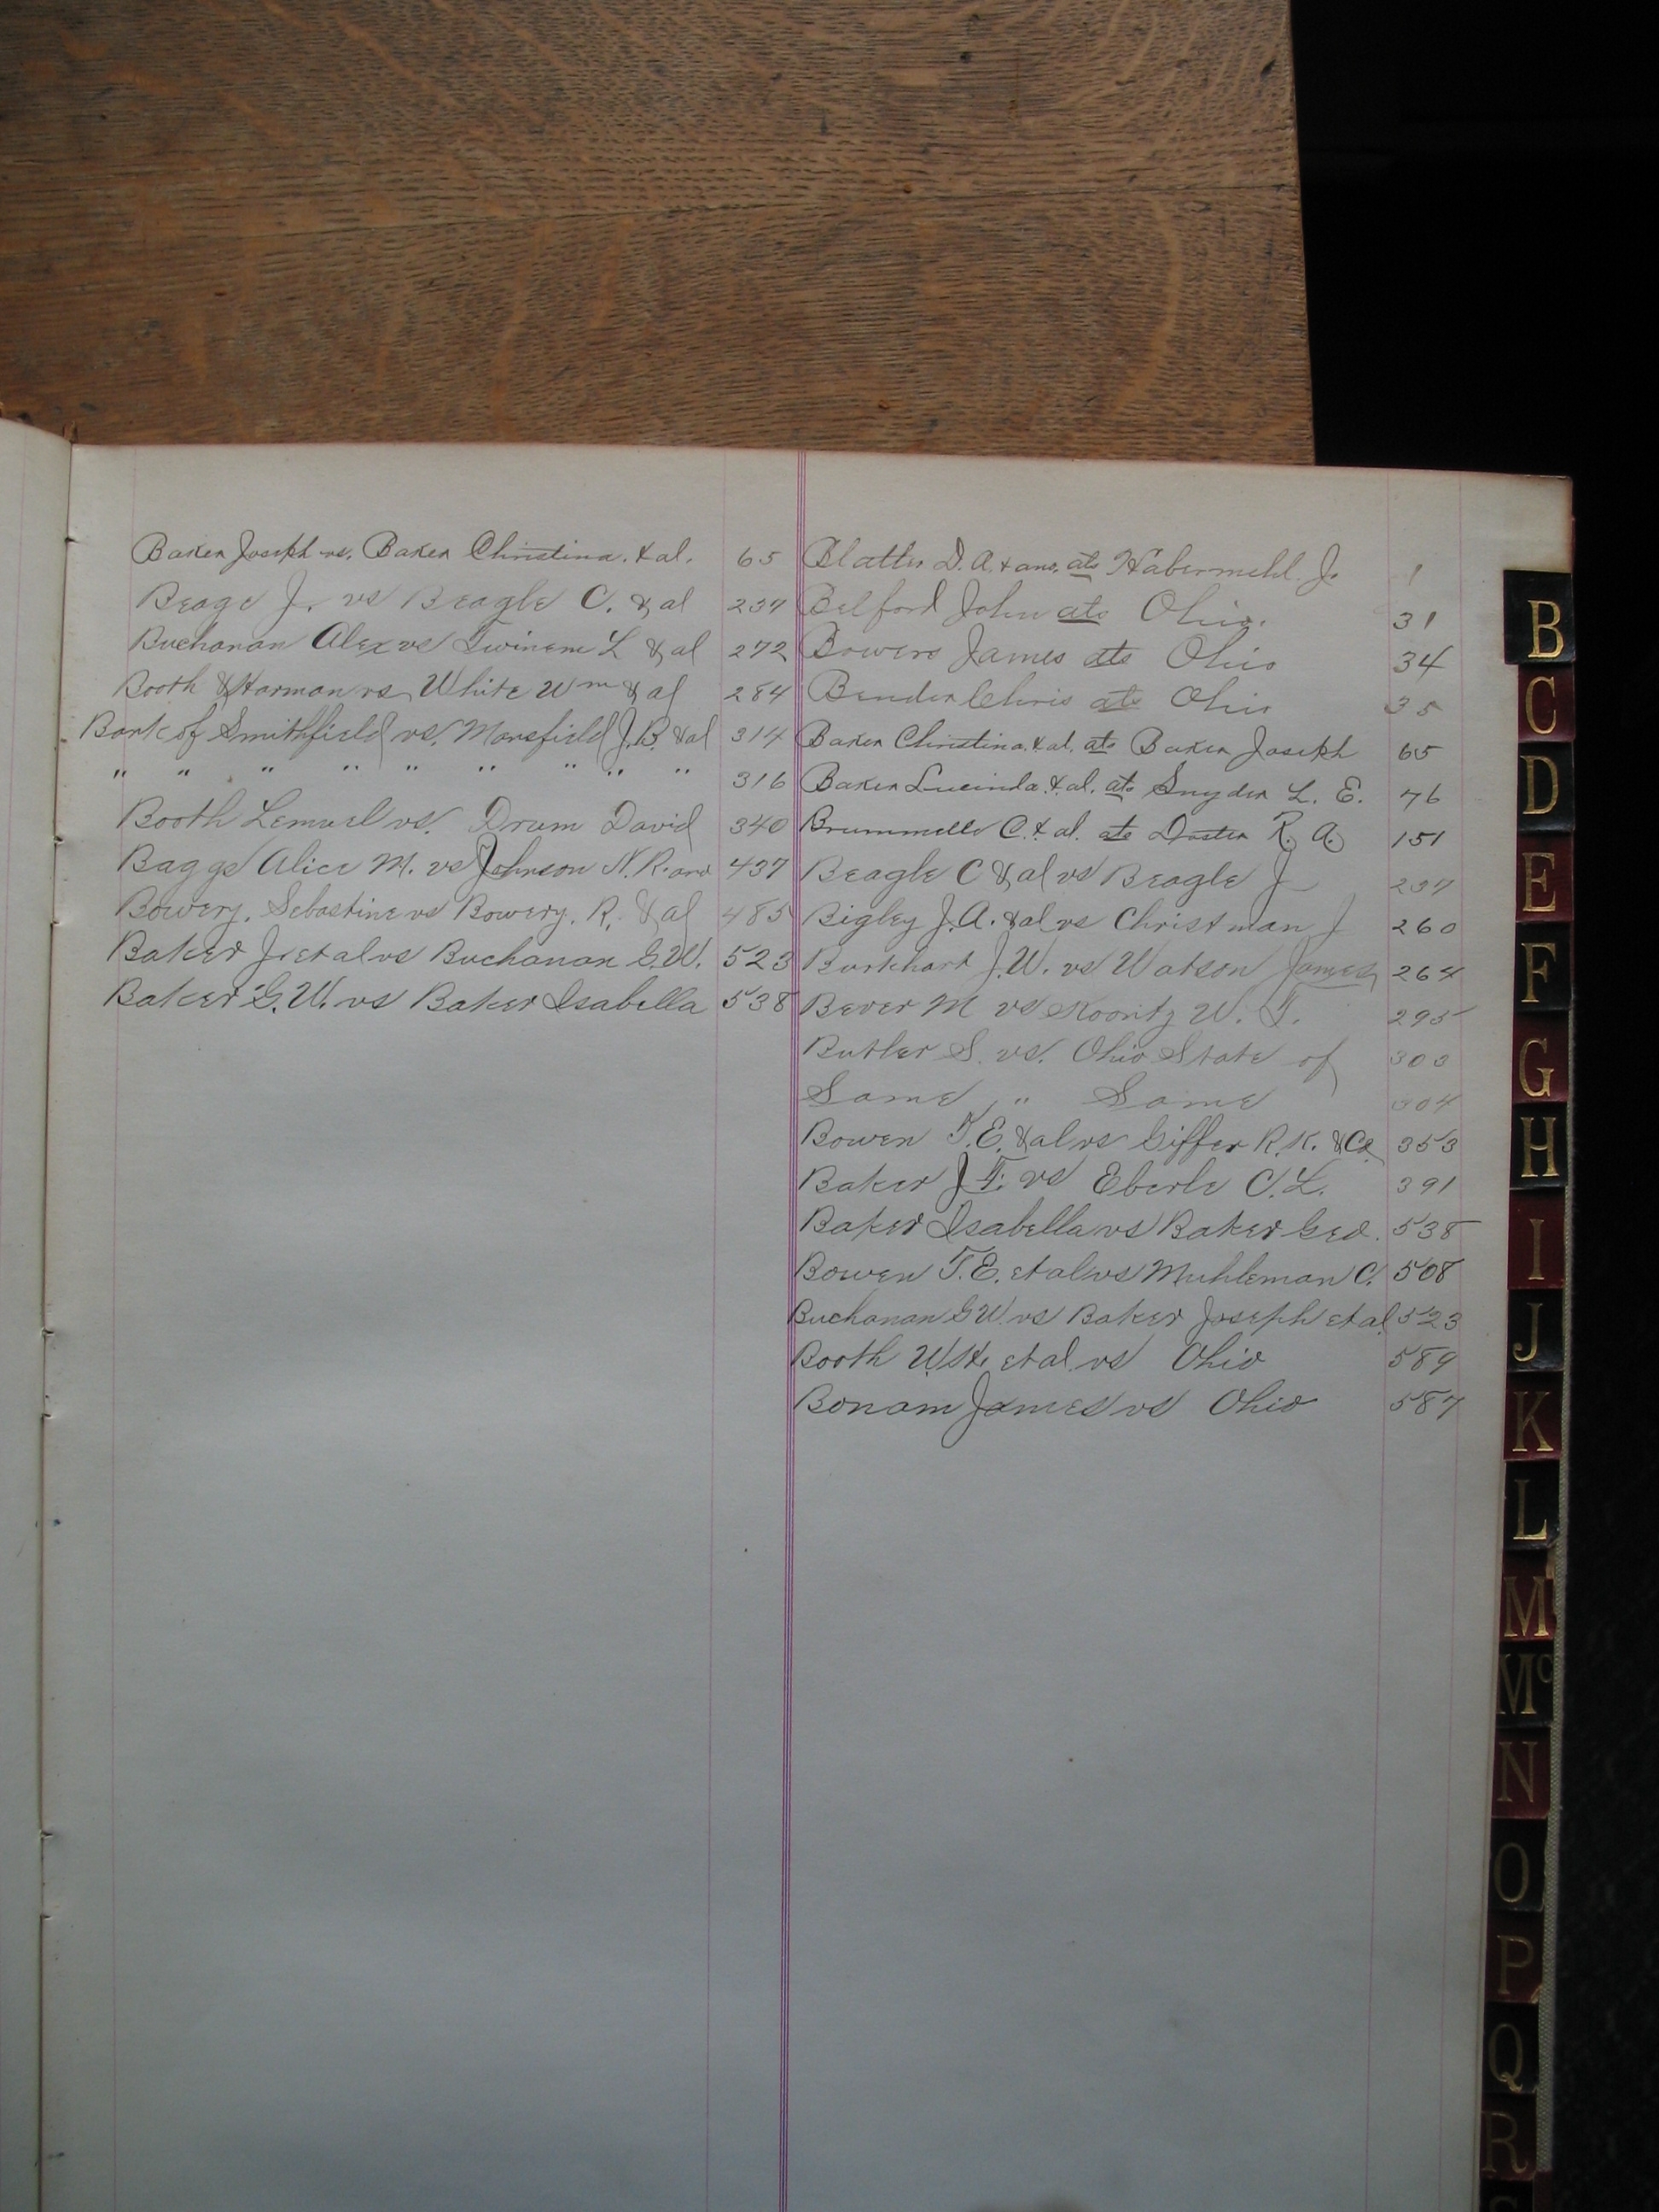 Baker Joseph vs. Baker Christina. & al. 65
Beage J. vs Beagle C. & al 237
Buchanan Alex vs Twinem L & al 272
Booth & Harman vs White Wm & al 284
Bank of Smithfield vs. Mansfield J.B. & al 314
" " " " " " " " " 316
Booth Lemuel vs. Drum David 340
Baggs Alice M. vs Johnson N.R. ano 437
Bowery. Sebastine vs Bowery. R. & al 485
Baker J. et al vs Buchanan G.W. 523
Baker G.W. vs Baker Isabella 538
Blatter D. A. & ano. ats Habermehl. J. 1
Belford John ats Ohio. 31
Bowers James ats Ohio 34
Bender Chris ats Ohio 35
Baker Christina. & al. ats Baker Joseph 65
Baker Lucinda. & al. ats Snyder L. E. 76
Brummells C. & al. ats Doster R. A. 151
Beagle C & al vs Beagle J 237
Bigley J.A. & al vs Christman J 260
Burkhart J.W. vs Watson James 264
Bever M vs Koontz W. T. 295
Butler S. vs. Ohio State of 303
Same " Same 304
Bowen T.E. & al vs Giffer R.K. & Co 353
Baker J T. vs Eberle C.L. 391
Baker Isabella vs Baker Geo. 538
Bowen T.E. et al vs Muhleman C. 508
Buchanan G W. vs Baker Joseph et al 523
Booth W.H. et al vs Ohio 589
Bonam James vs Ohio 587
B
C
D
E
F
G
H
I
J
K
L
M
Mc
N
O
P
Q
R